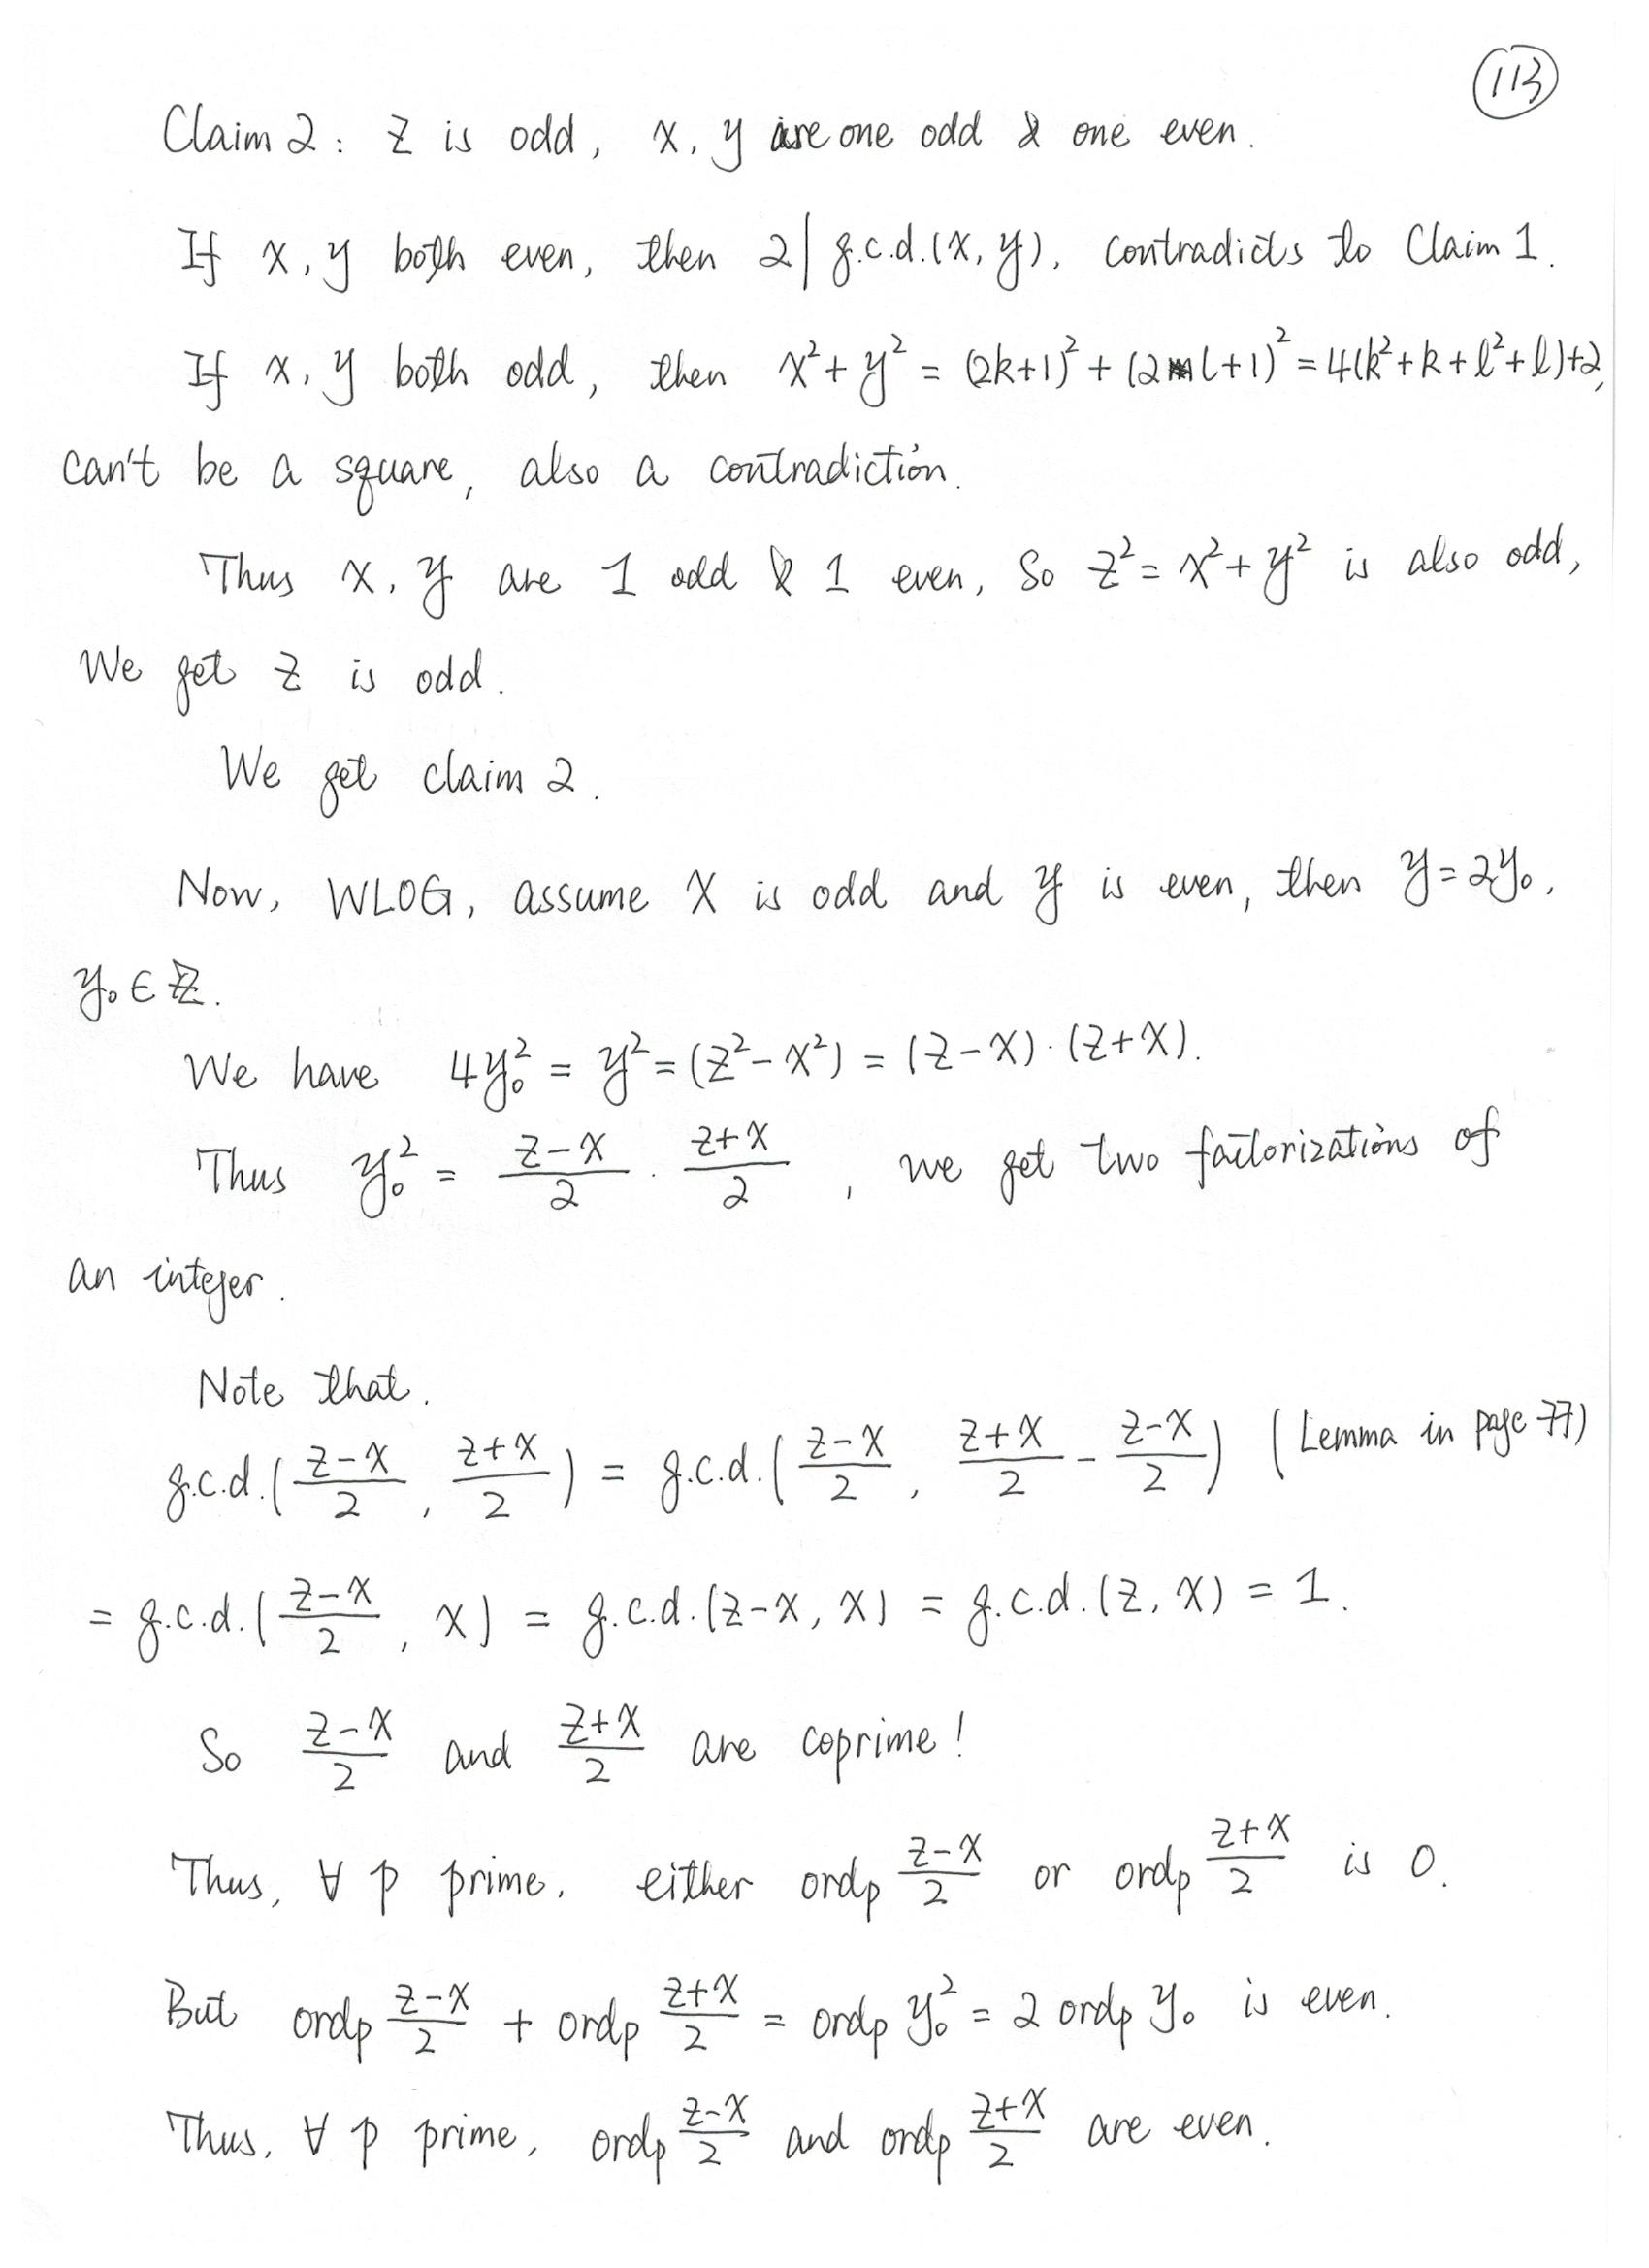 113
Claim 2: z is odd, x, y are one odd & one even.
If x, y both even, then 2 | g.c.d.(x, y), contradicts to Claim 1.
If x, y both odd, then x² + y² = (2k+1)² + (2l+1)² = 4(k²+k+l²+l)+2,
can't be a square, also a contradiction.
Thus x, y are 1 odd & 1 even, So z² = x² + y² is also odd,
We get z is odd.
We get claim 2.
Now, WLOG, assume x is odd and y is even, then y = 2y₀,
y₀ ∈ ℤ.
We have 4y₀² = y² = (z² - x²) = (z-x)·(z+x).
Thus y₀² = (z-x)/2 · (z+x)/2, we get two factorizations of
an integer.
Note that.
g.c.d.((z-x)/2, (z+x)/2) = g.c.d.((z-x)/2, (z+x)/2 - (z-x)/2) (Lemma in page 77)
= g.c.d.((z-x)/2, x) = g.c.d.(z-x, x) = g.c.d.(z, x) = 1.
So (z-x)/2 and (z+x)/2 are coprime!
Thus, ∀ p prime, either ordₚ (z-x)/2 or ordₚ (z+x)/2 is 0.
But ordₚ (z-x)/2 + ordₚ (z+x)/2 = ordₚ y₀² = 2 ordₚ y₀ is even.
Thus, ∀ p prime, ordₚ (z-x)/2 and ordₚ (z+x)/2 are even.